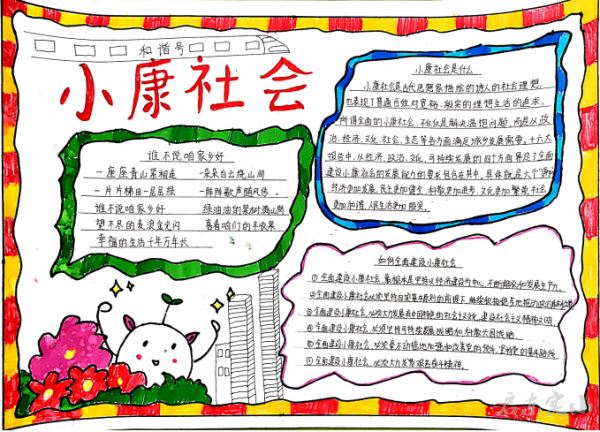 和谐号
小康社会
谁不说咱家乡好
一座座青山紧相连 一朵朵白云绕山间
一片片梯田一层层绿 一阵阵歌声随风传
谁不说咱家乡好 绿油油的果树满山岗
望不尽的麦浪金光闪 喜看咱们的丰收果
幸福的生活千年万年长
小康社会是什么
小康社会是古代思想家描绘的诱人的社会理想,
也表现了普通百姓对宽裕、殷实的理想生活的追求。
所谓全面的小康社会,不仅仅是解决温饱问题,而是从政
治、经济、文化、社会、生态等各方面满足城乡发展需要。十六大
报告中从经济、政治、文化、可持续发展的四个方面界定了全面
建设小康社会的
经济更加发展、民主更加健全、科教更加进步、文化更加繁荣、社会
更加和谐、人民生活更加殷实。
如何全面建设小康社会
①全面建设小康社会,最根本是坚持以经济建设为中心,不断解放和发展生产力。
②全面建设小康社会,必须坚持
③全面建设小康社会,必须大力发展社会主义文化,建设社会主义精神文明。
④全面建设小康社会,必须坚持可持续发展战略和科教兴国战略。
⑤全面建设小康社会,必须要不动摇地加强和改善党的领导,坚持党的基本路线。
⑥全面建设小康社会,必须大力发扬艰苦奋斗精神。